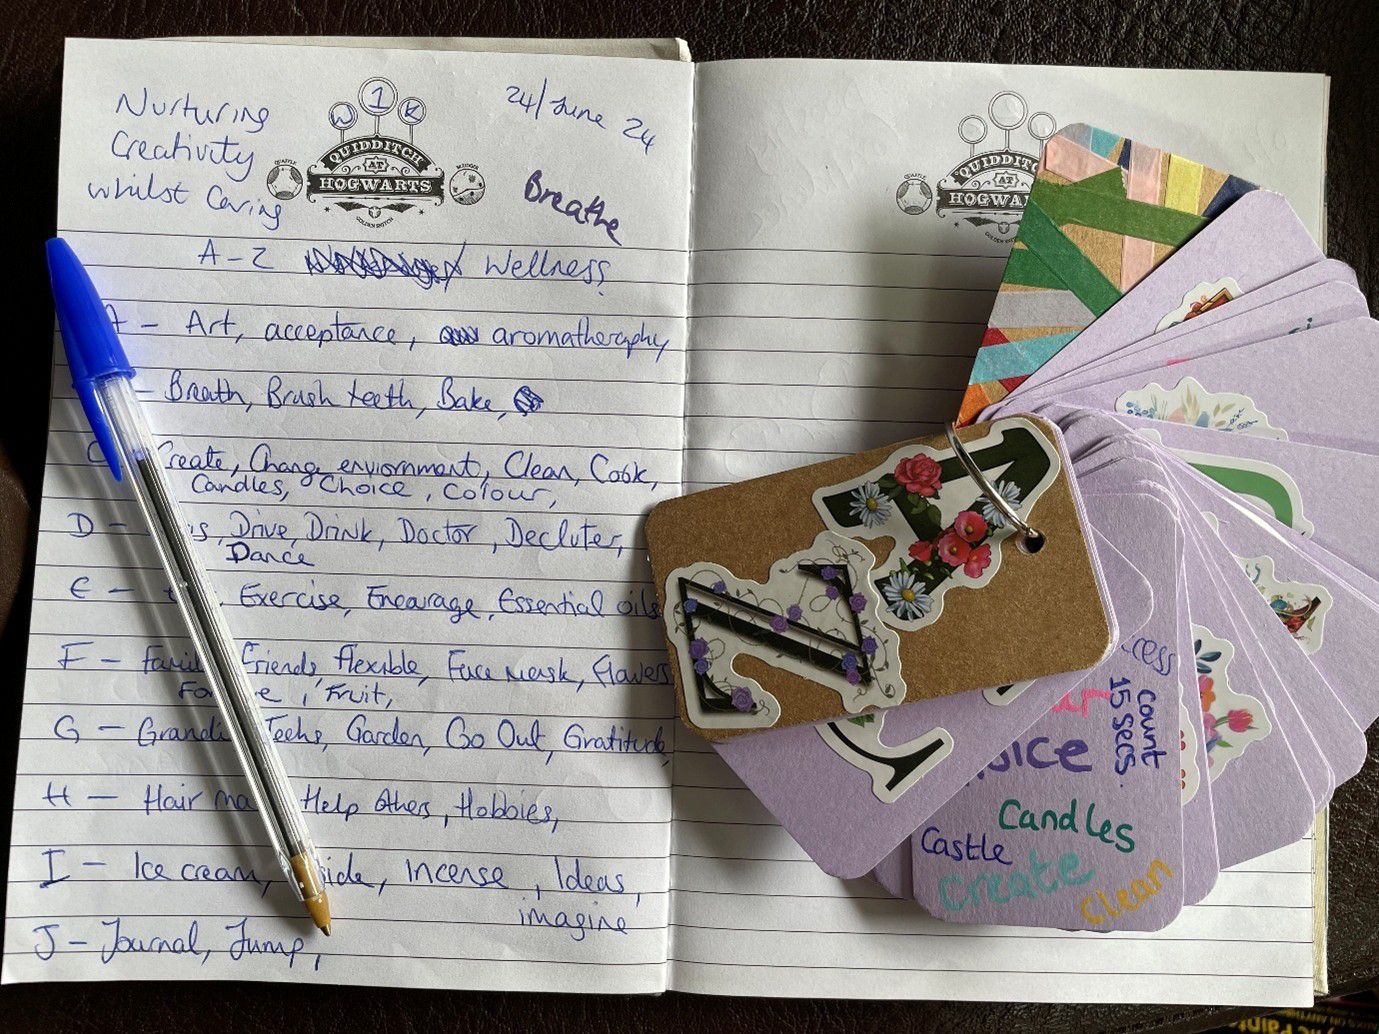 Nurturing
Creativity
whilst Caring
W 1 K
QUAFFLE
QUIDDITCH
AT
HOGWARTS
GOLDEN SNITCH
BLUDGER
24/June 24
Breathe
A-Z Wellness
A - Art, acceptance, aromatheraphy
- Breath, Brush teeth, Bake,
C Create, Change enviornment, Clean, Cook,
Candles, Choice, Colour,
D - Drive, Drink, Doctor, Decluter,
Dance
E - Exercise, Encourage, Essential oils
F - Family Friends, Flexible, Face mask, Flowers
Fruit,
G - Teeths, Garden, Go Out, Gratitude,
H - Hair Help others, Hobbies,
I - Ice cream, Incense, Ideas,
imagine
J - Journal, Jump,
QUAFFLE
QUIDDITCH
AT
HOGWARTS
GOLDEN SNITCH
A
Z
count
15 secs.
Candles
Castle
create
clean